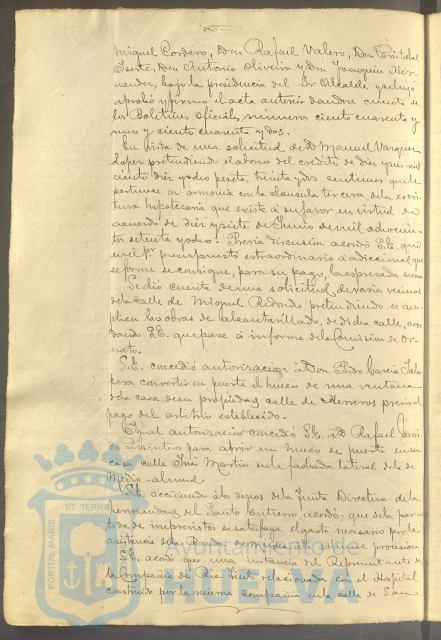 Miguel Cordero, Don Rafael Valero, Don Cristobal
Don Antonio Oliveira y Don Joaquin Her-
nandez, bajo la presidencia del Sr Alcalde
aprobó y firmó el acta anterior dandose cuenta de
los Boletines Oficiales, numeros ciento cuarenta y
uno y ciento cuarenta y dos.
En vista de una solicitud de D Manuel Vazquez
Lopez pretendiendo el abono del credito de diez y seis mil
ciento diez y ocho pesetas, treinta y dos centimos que le
pertenece en armonía con la clausula tercera, de la escri-
tura hipotecaria que existe á su favor en virtud de
acuerdo de diez y siete de Junio de mil ochocien-
tos setenta y ocho. Previa discusion acordó S.E. que
en el 1er presupuesto extraordinario ó adicional que
se forme se consigne, para su pago, la expresada suma
Se dió cuenta de una solicitud de varios vecinos
de la calle de Miguel Redondo pretendiendo se am-
plien las obras de alcantarillado, de dicha calle, acor-
dando S.E. que pase á informe de la Comision de Or-
nato.
S.E. concedió autorizacion á Don Pedro Garcia
para convertir en puerta el hueco de una ventana
de la casa de su propiedad calle de Herreros previo el
pago del arbitrio establecido.
Igual autorizacion concedió S.E. á D Rafael
Quintero para abrir un hueco de puerta en su
casa calle Ines Martin en la fachada lateral de la de
Medio-almud.
S.E. accediendo á los deseos de la Junta Directiva de la
Hermandad del Santo Entierro, acordó, que de la par-
tida de imprevistos se satisfaga el gasto necesario por la
asistencia de la Banda de musica á dicha procesion
S.E. acordó que una instancia del Representante de
la Compañia de Rio Tinto relacionada con el Hospital
construido por la misma Compañia en la calle de San
Ayuntamiento de
HUELVA
PORTUS MARIS
ET TERRAE